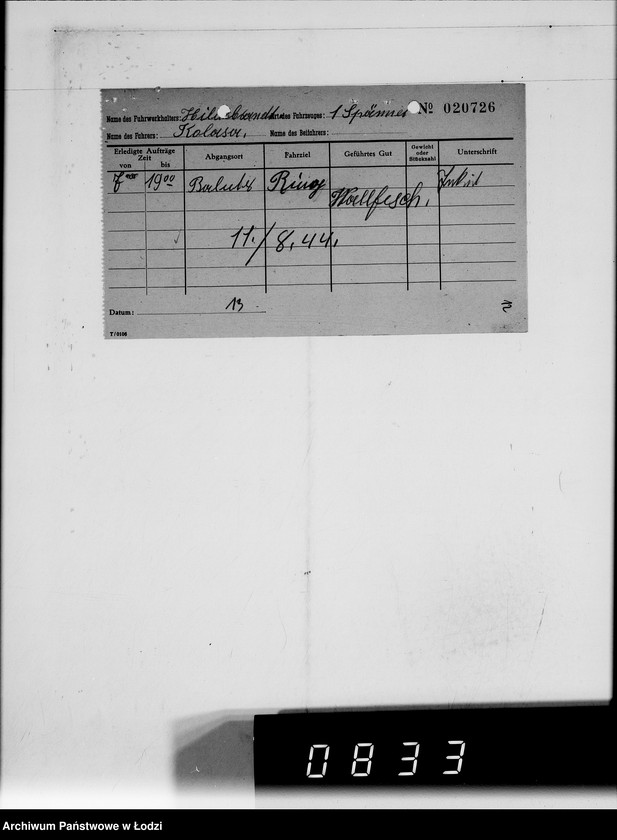 Name des Fuhrwerkhalters: Hildebrandt Art des Fahrzeuges: 1 Spänner № 020726
Name des Fahrers: Kolasa, Name des Beifahrers:
Erledigte Aufträge Zeit von bis Abgangsort Fahrziel Geführtes Gut Gewicht oder Stückzahl Unterschrift
7 00 19 00 Baluty Ring Wallfisch,
11./8.44.
Datum: 13
T/0106
0833
Archiwum Państwowe w Łodzi